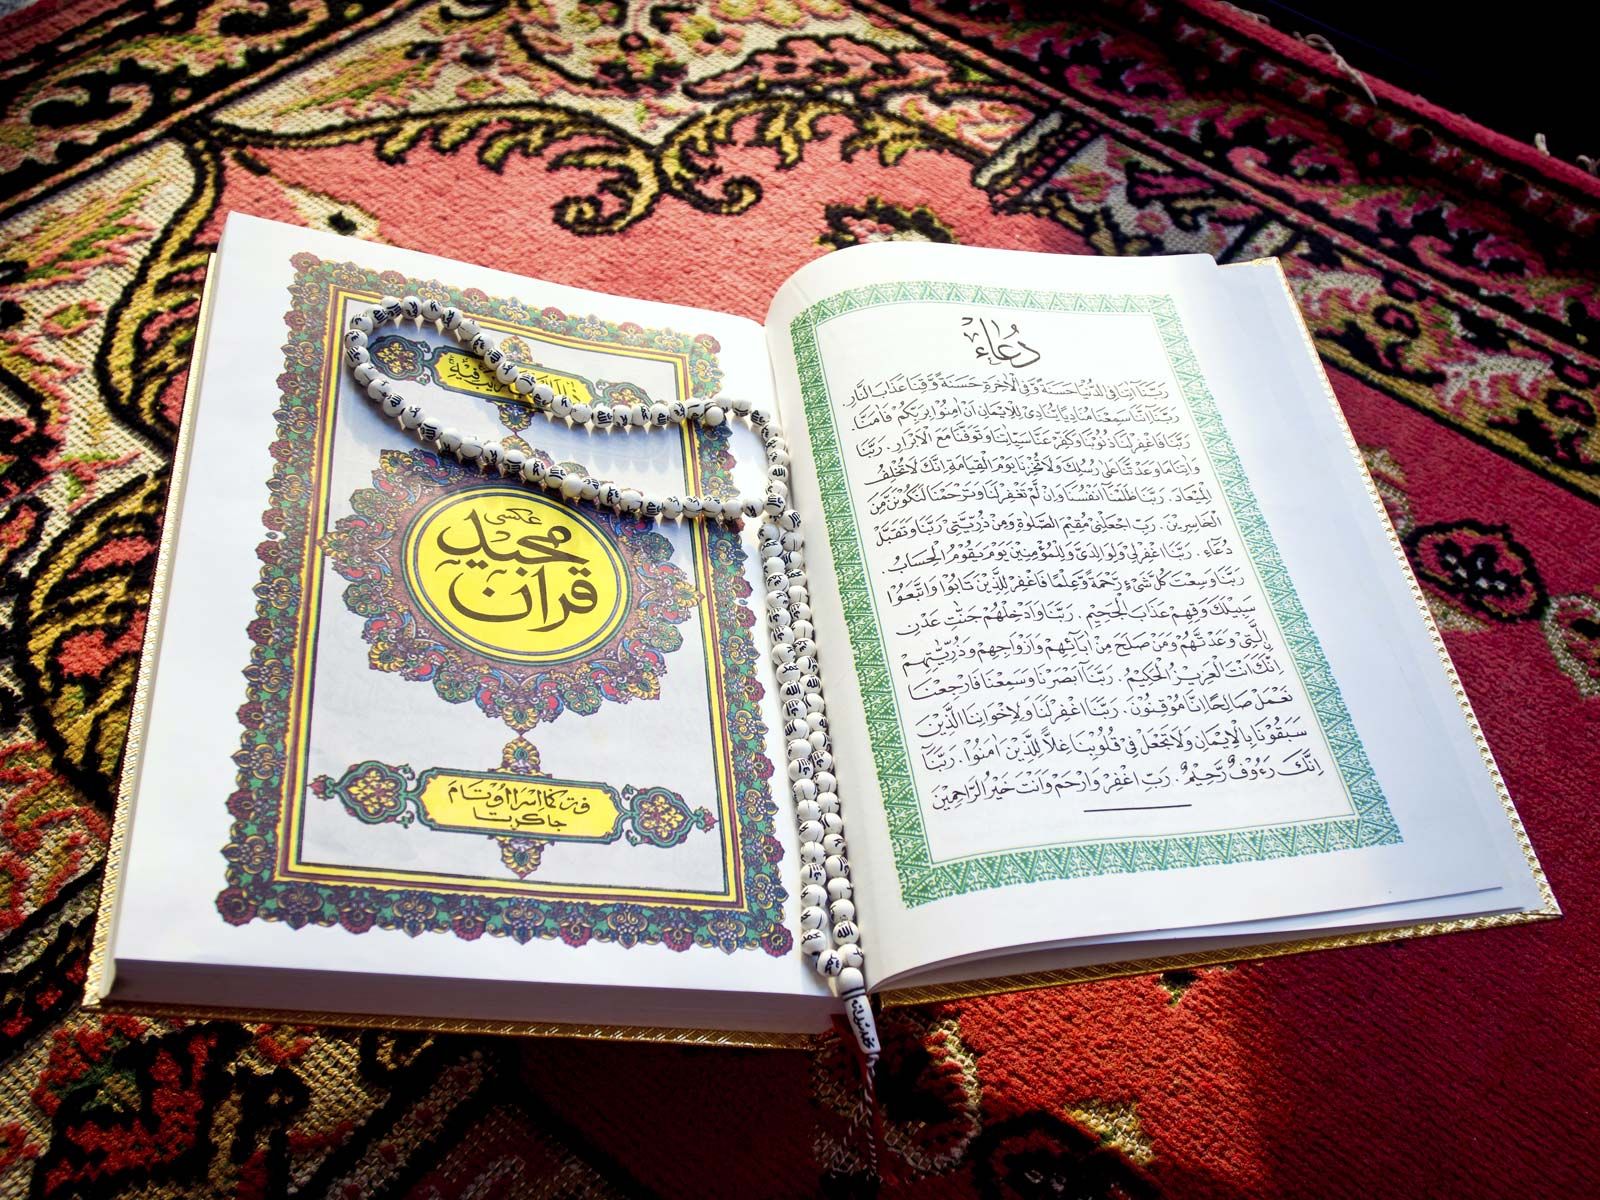 دُعَاء
رَبَّنَآ اٰتِنَا فِي الدُّنْيَا حَسَنَةً وَّفِي الْاٰخِرَةِ حَسَنَةً وَّقِنَا عَذَابَ النَّارِ.
رَبَّنَآ اِنَّنَا سَمِعْنَا مُنَادِيًا يُّنَادِيْ لِلْاِيْمَانِ اَنْ اٰمِنُوْا بِرَبِّكُمْ فَاٰمَنَّا
رَبَّنَا فَاغْفِرْ لَنَا ذُنُوْبَنَا وَكَفِّرْ عَنَّا سَيِّاٰتِنَا وَتَوَفَّنَا مَعَ الْاَبْرَارِ. رَبَّنَا
وَاٰتِنَا مَا وَعَدْتَّنَا عَلٰى رُسُلِكَ وَلَا تُخْزِنَا يَوْمَ الْقِيَامَةِ اِنَّكَ لَا تُخْلِفُ
الْمِيْعَادَ. رَبَّنَا ظَلَمْنَآ اَنْفُسَنَا وَاِنْ لَّمْ تَغْفِرْ لَنَا وَتَرْحَمْنَا لَنَكُوْنَنَّ مِنَ
الْخَاسِرِيْنَ. رَبِّ اجْعَلْنِيْ مُقِيْمَ الصَّلٰوةِ وَمِنْ ذُرِّيَّتِيْ رَبَّنَا وَتَقَبَّلْ
دُعَآءِ. رَبَّنَا اغْفِرْ لِيْ وَلِوَالِدَيَّ وَلِلْمُؤْمِنِيْنَ يَوْمَ يَقُوْمُ الْحِسَابُ.
رَبَّنَا وَسِعْتَ كُلَّ شَيْءٍ رَّحْمَةً وَّعِلْمًا فَاغْفِرْ لِلَّذِيْنَ تَابُوْا وَاتَّبَعُوْا
سَبِيْلَكَ وَقِهِمْ عَذَابَ الْجَحِيْمِ. رَبَّنَا وَاَدْخِلْهُمْ جَنّٰتِ عَدْنِ
الَّتِيْ وَعَدْتَّهُمْ وَمَنْ صَلَحَ مِنْ اٰبَآئِهِمْ وَاَزْوَاجِهِمْ وَذُرِّيّٰتِهِمْ
اِنَّكَ اَنْتَ الْعَزِيْزُ الْحَكِيْمُ. رَبَّنَآ اَبْصَرْنَا وَسَمِعْنَا فَارْجِعْنَا
نَعْمَلْ صَالِحًا اِنَّا مُوْقِنُوْنَ. رَبَّنَا اغْفِرْ لَنَا وَلِاِخْوَانِنَا الَّذِيْنَ
سَبَقُوْنَا بِالْاِيْمَانِ وَلَا تَجْعَلْ فِيْ قُلُوْبِنَا غِلًّا لِّلَّذِيْنَ اٰمَنُوْا. رَبَّنَآ
اِنَّكَ رَءُوْفٌ رَّحِيْمٌ. رَبِّ اغْفِرْ وَارْحَمْ وَاَنْتَ خَيْرُ الرَّاحِمِيْنَ
عكسى
مجيد
قرآن
جاكرتا